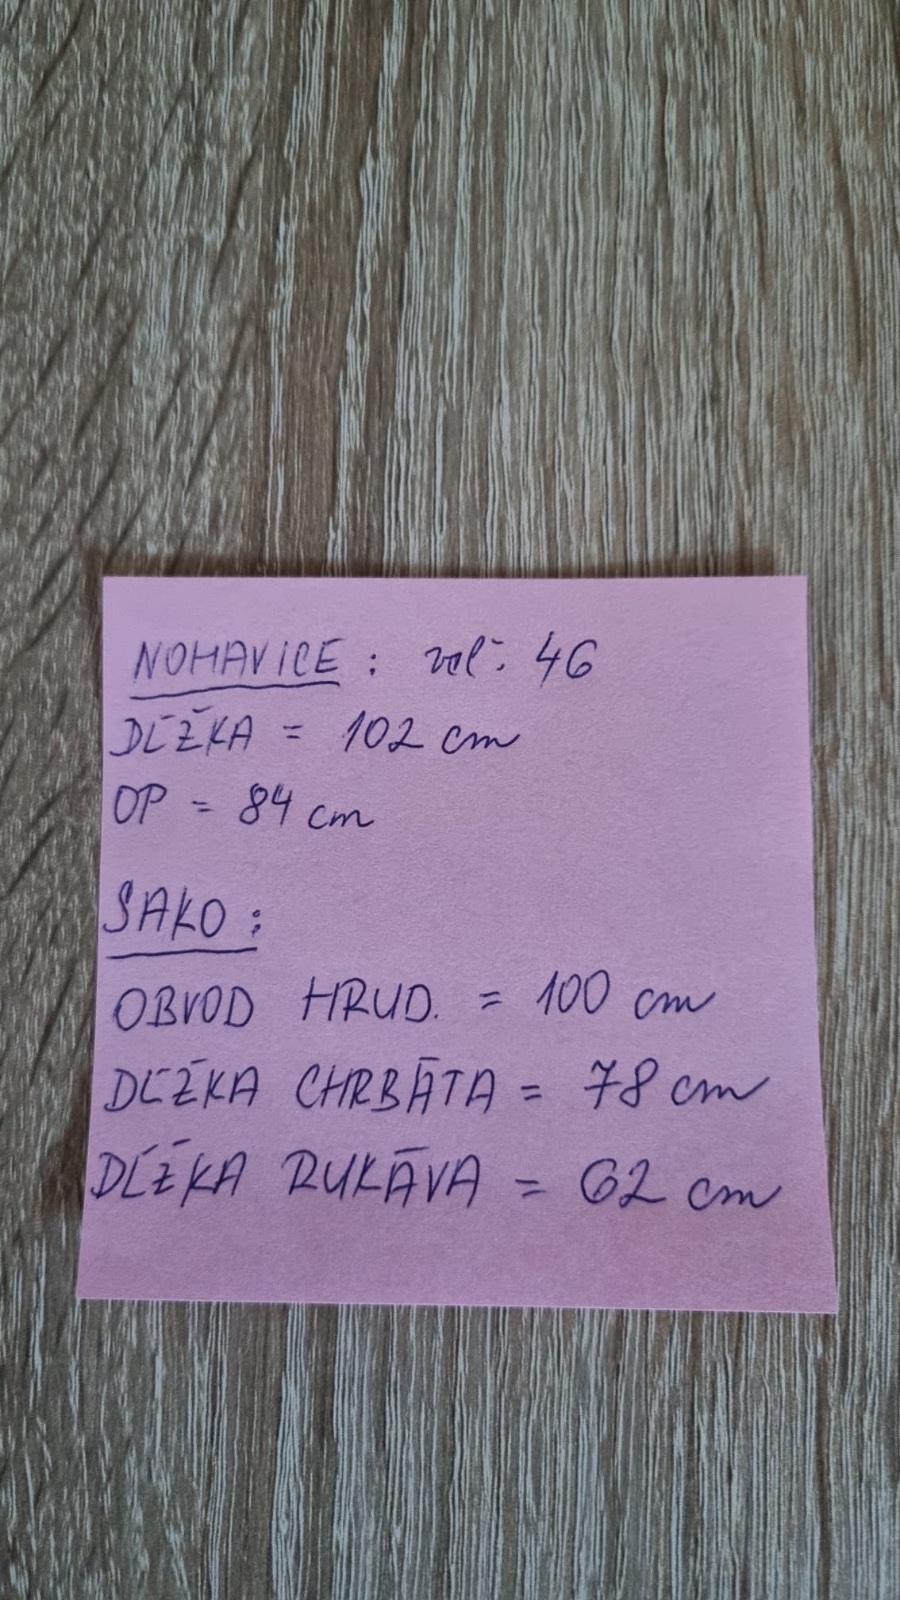 NOHAVICE : veľ: 46
DĹŽKA = 102 cm
OP = 84 cm
SAKO :
OBVOD HRUD. = 100 cm
DĹŽKA CHRBÁTA = 78 cm
DĹŽKA RUKÁVA = 62 cm